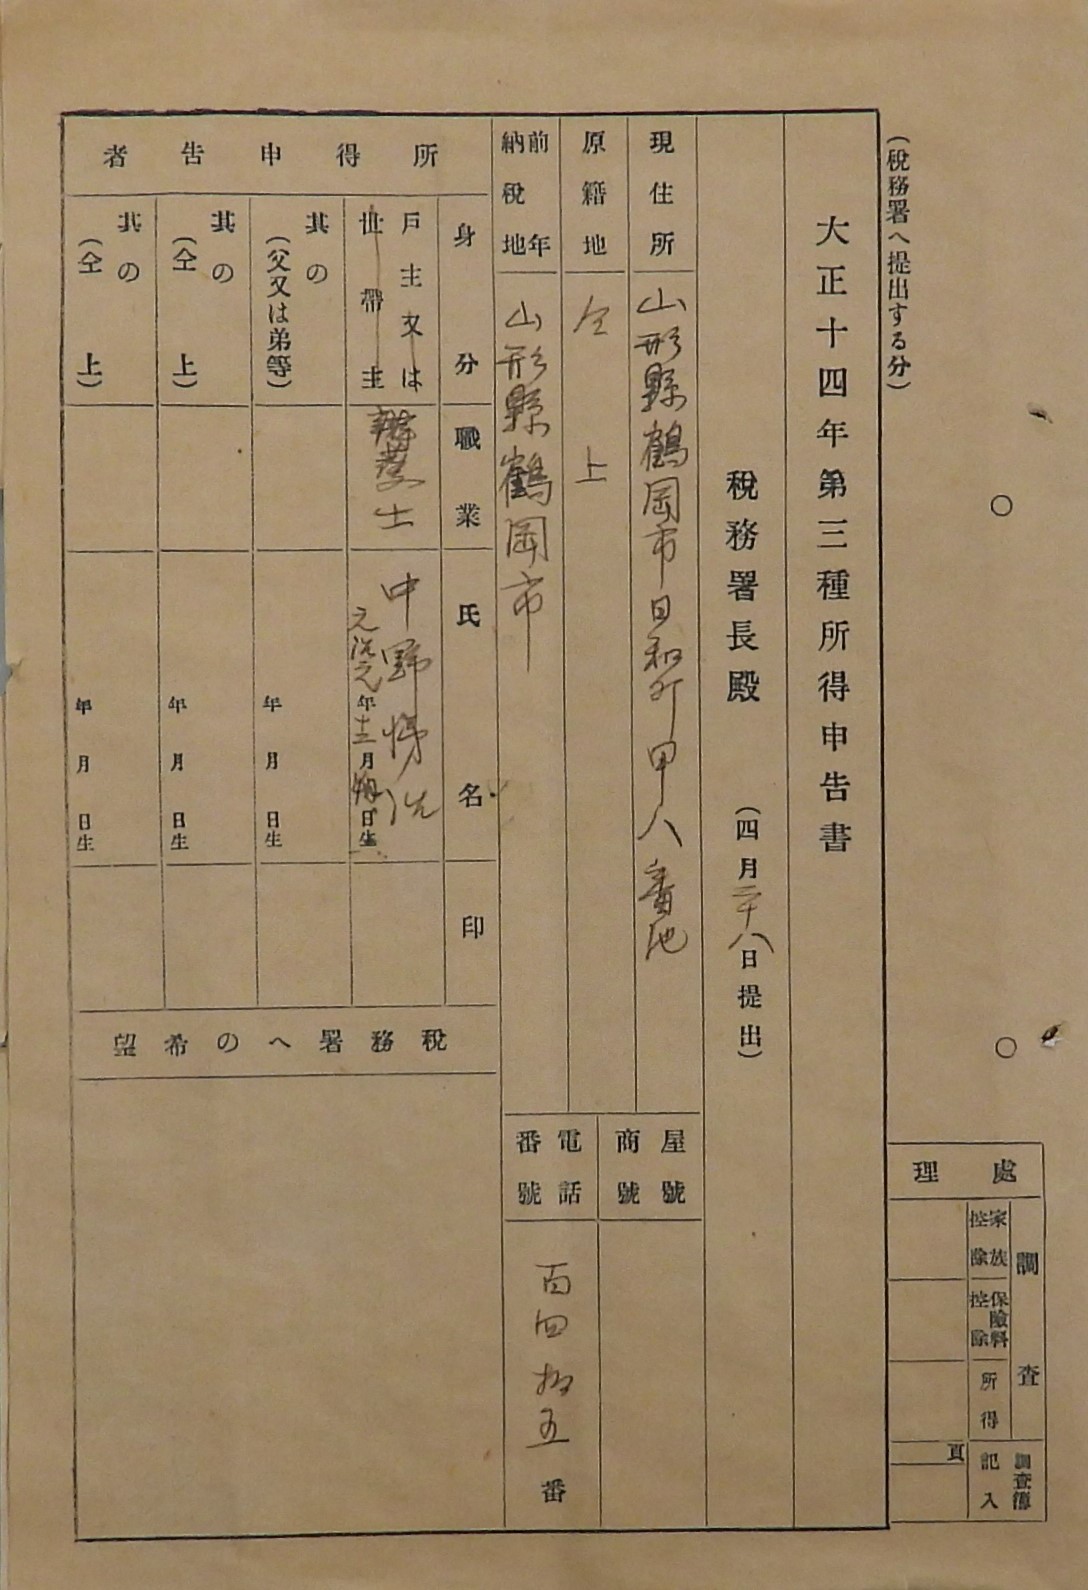 (税務署へ提出する分)
大正十四年第三種所得申告書
税務署長殿 (四月二十八日提出)
現住所 山形縣鶴岡市日和町甲八番地
原籍地 仝上
前年納税地 山形縣鶴岡市
屋號商號
電話番號 百四拾五番
所得申告者
身分 職業 氏名 印
戸主又は世帶主 辯護士 中野
年 月 日生
其の(父又は弟等) 年 月 日生
其の(仝上) 年 月 日生
其の(仝上) 年 月 日生
税務署への希望
處理
調査
家族控除
保險料控除
所得
調査簿記入
頁